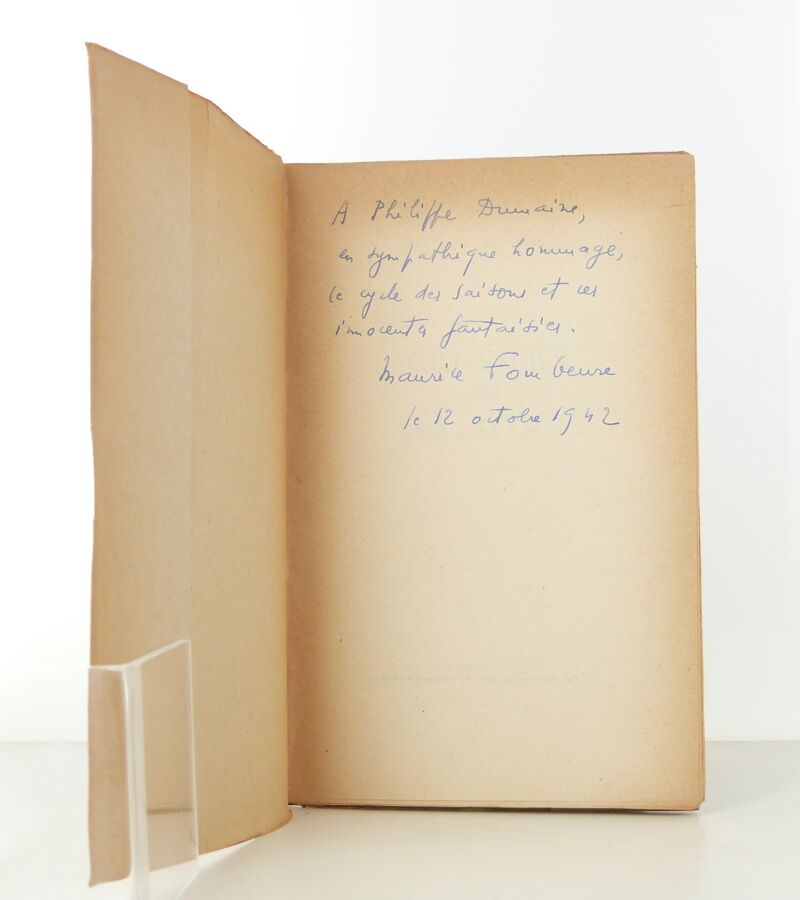 A Philippe Dumaine,
en sympathique hommage,
ce cycle des saisons et ces
innocentes fantaisies.
Maurice Fombeure
le 12 octobre 1942